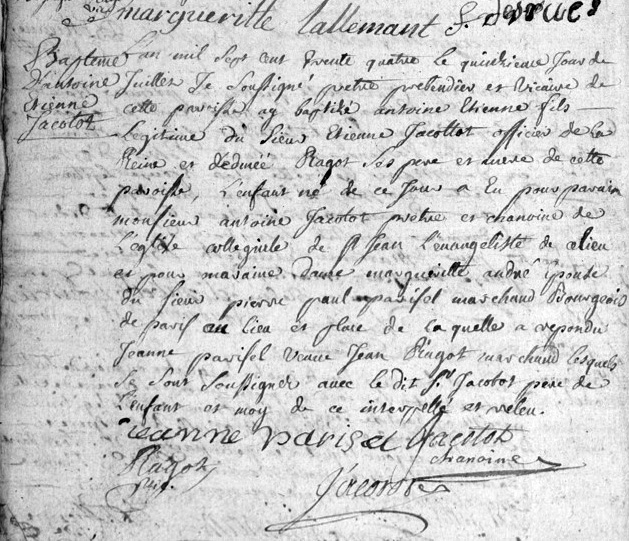 margueritte lallemant f. derues
Bapteme
D'antoine
Etienne
Jacotot
L'an mil Sept cent trente quatre le quinzieme Jour de
Juillet Je Soussigné pretre prebendier et vicaire de
cette paroisse ay baptisé antoine Etienne fils
Legitime du Sieur Etienne Jacottot officier de la
Reine et dedmeé Ragot Ses pere et mere de cette
paroisse, L'enfant né de ce Jour a Eu pour parain
monsieur antoine Jacotot pretre et chanoine de
L'eglise collegiale de St Jean L'evangeliste de ce lieu
et pour maraine Dame margueritte andré Epouse
du Sieur pierre paul parisel marchand Bourgeois
de paris au lieu et place de laquelle a repondu
Jeanne parisel veuve Jean Ragot marchand lesquels
Se Sont Soussigner avec le dit Sr Jacotot pere de
L'enfant et moy de ce interpellé et releu.
jeanne parisel Jacotot
chanoine
Ragot
Jacotot